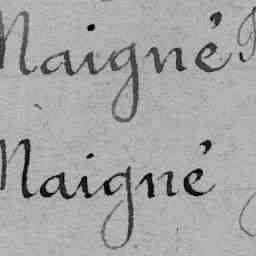 Naigné
Naigné